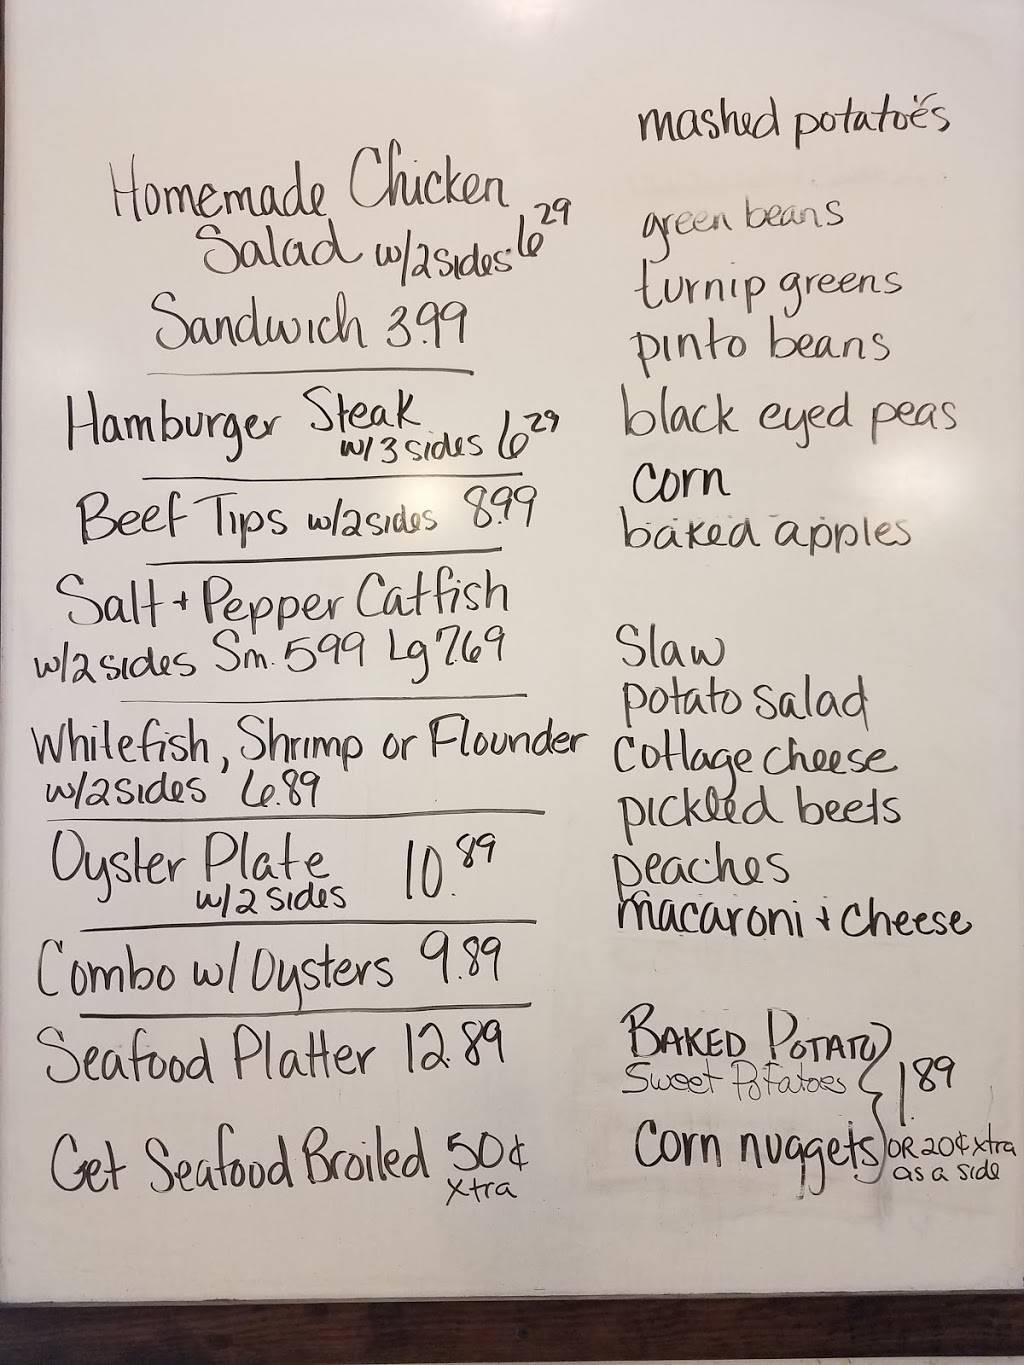 Homemade Chicken
Salad w/2 sides 6.29
Sandwich 3.99
Hamburger Steak
w/3 sides 6.29
Beef Tips w/2 sides 8.99
Salt + Pepper Catfish
w/2 sides Sm. 5.99 Lg 7.69
Whitefish, Shrimp or Flounder
w/2 sides 6.89
Oyster Plate 10.89
w/2 sides
Combo w/ Oysters 9.89
Seafood Platter 12.89
Get Seafood Broiled 50¢
xtra
mashed potatoes
green beans
turnip greens
pinto beans
black eyed peas
corn
baked apples
Slaw
potato salad
Cottage cheese
pickled beets
peaches
macaroni + cheese
BAKED POTATO
Sweet Potatoes
1.89
Corn nuggets OR 20¢ xtra
as a side